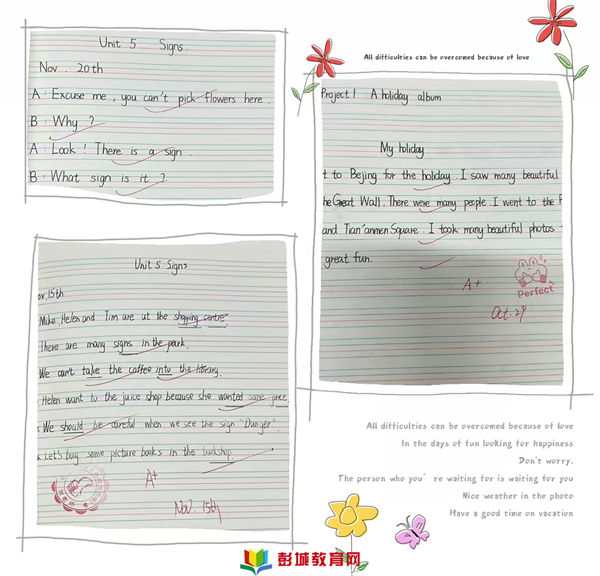 Unit 5 Signs.
Nov. 20th
A: Excuse me, you can't pick flowers here.
B: Why?
A: Look! There is a sign.
B: What sign is it?
All difficulties can be overcomed because of love
Project 1 A holiday album
My holiday
t to Bejing for the holiday. I saw many beautiful
he Great Wall. There were many people. I went to the F
and Tian'anmen Square. I took many beautiful photos
great fun.
A+
Perfect
Oct. 29
Unit 5 Signs
ov. 15th
Mike, Helen and Tim are at the shopping centre.
There are many signs in the park.
We can't take the coffee into the library.
Helen want to the juice shop because she wanted some juice.
We should be careful when we see the sign "Danger".
Let's buy some picture books in the bookshop.
A+
Nov. 15th
All difficulties can be overcomed because of love
In the days of fun looking for happiness
Don't worry.
The person who you're waiting for is waiting for you
Nice weather in the photo
Have a good time on vacation
彭城教育网